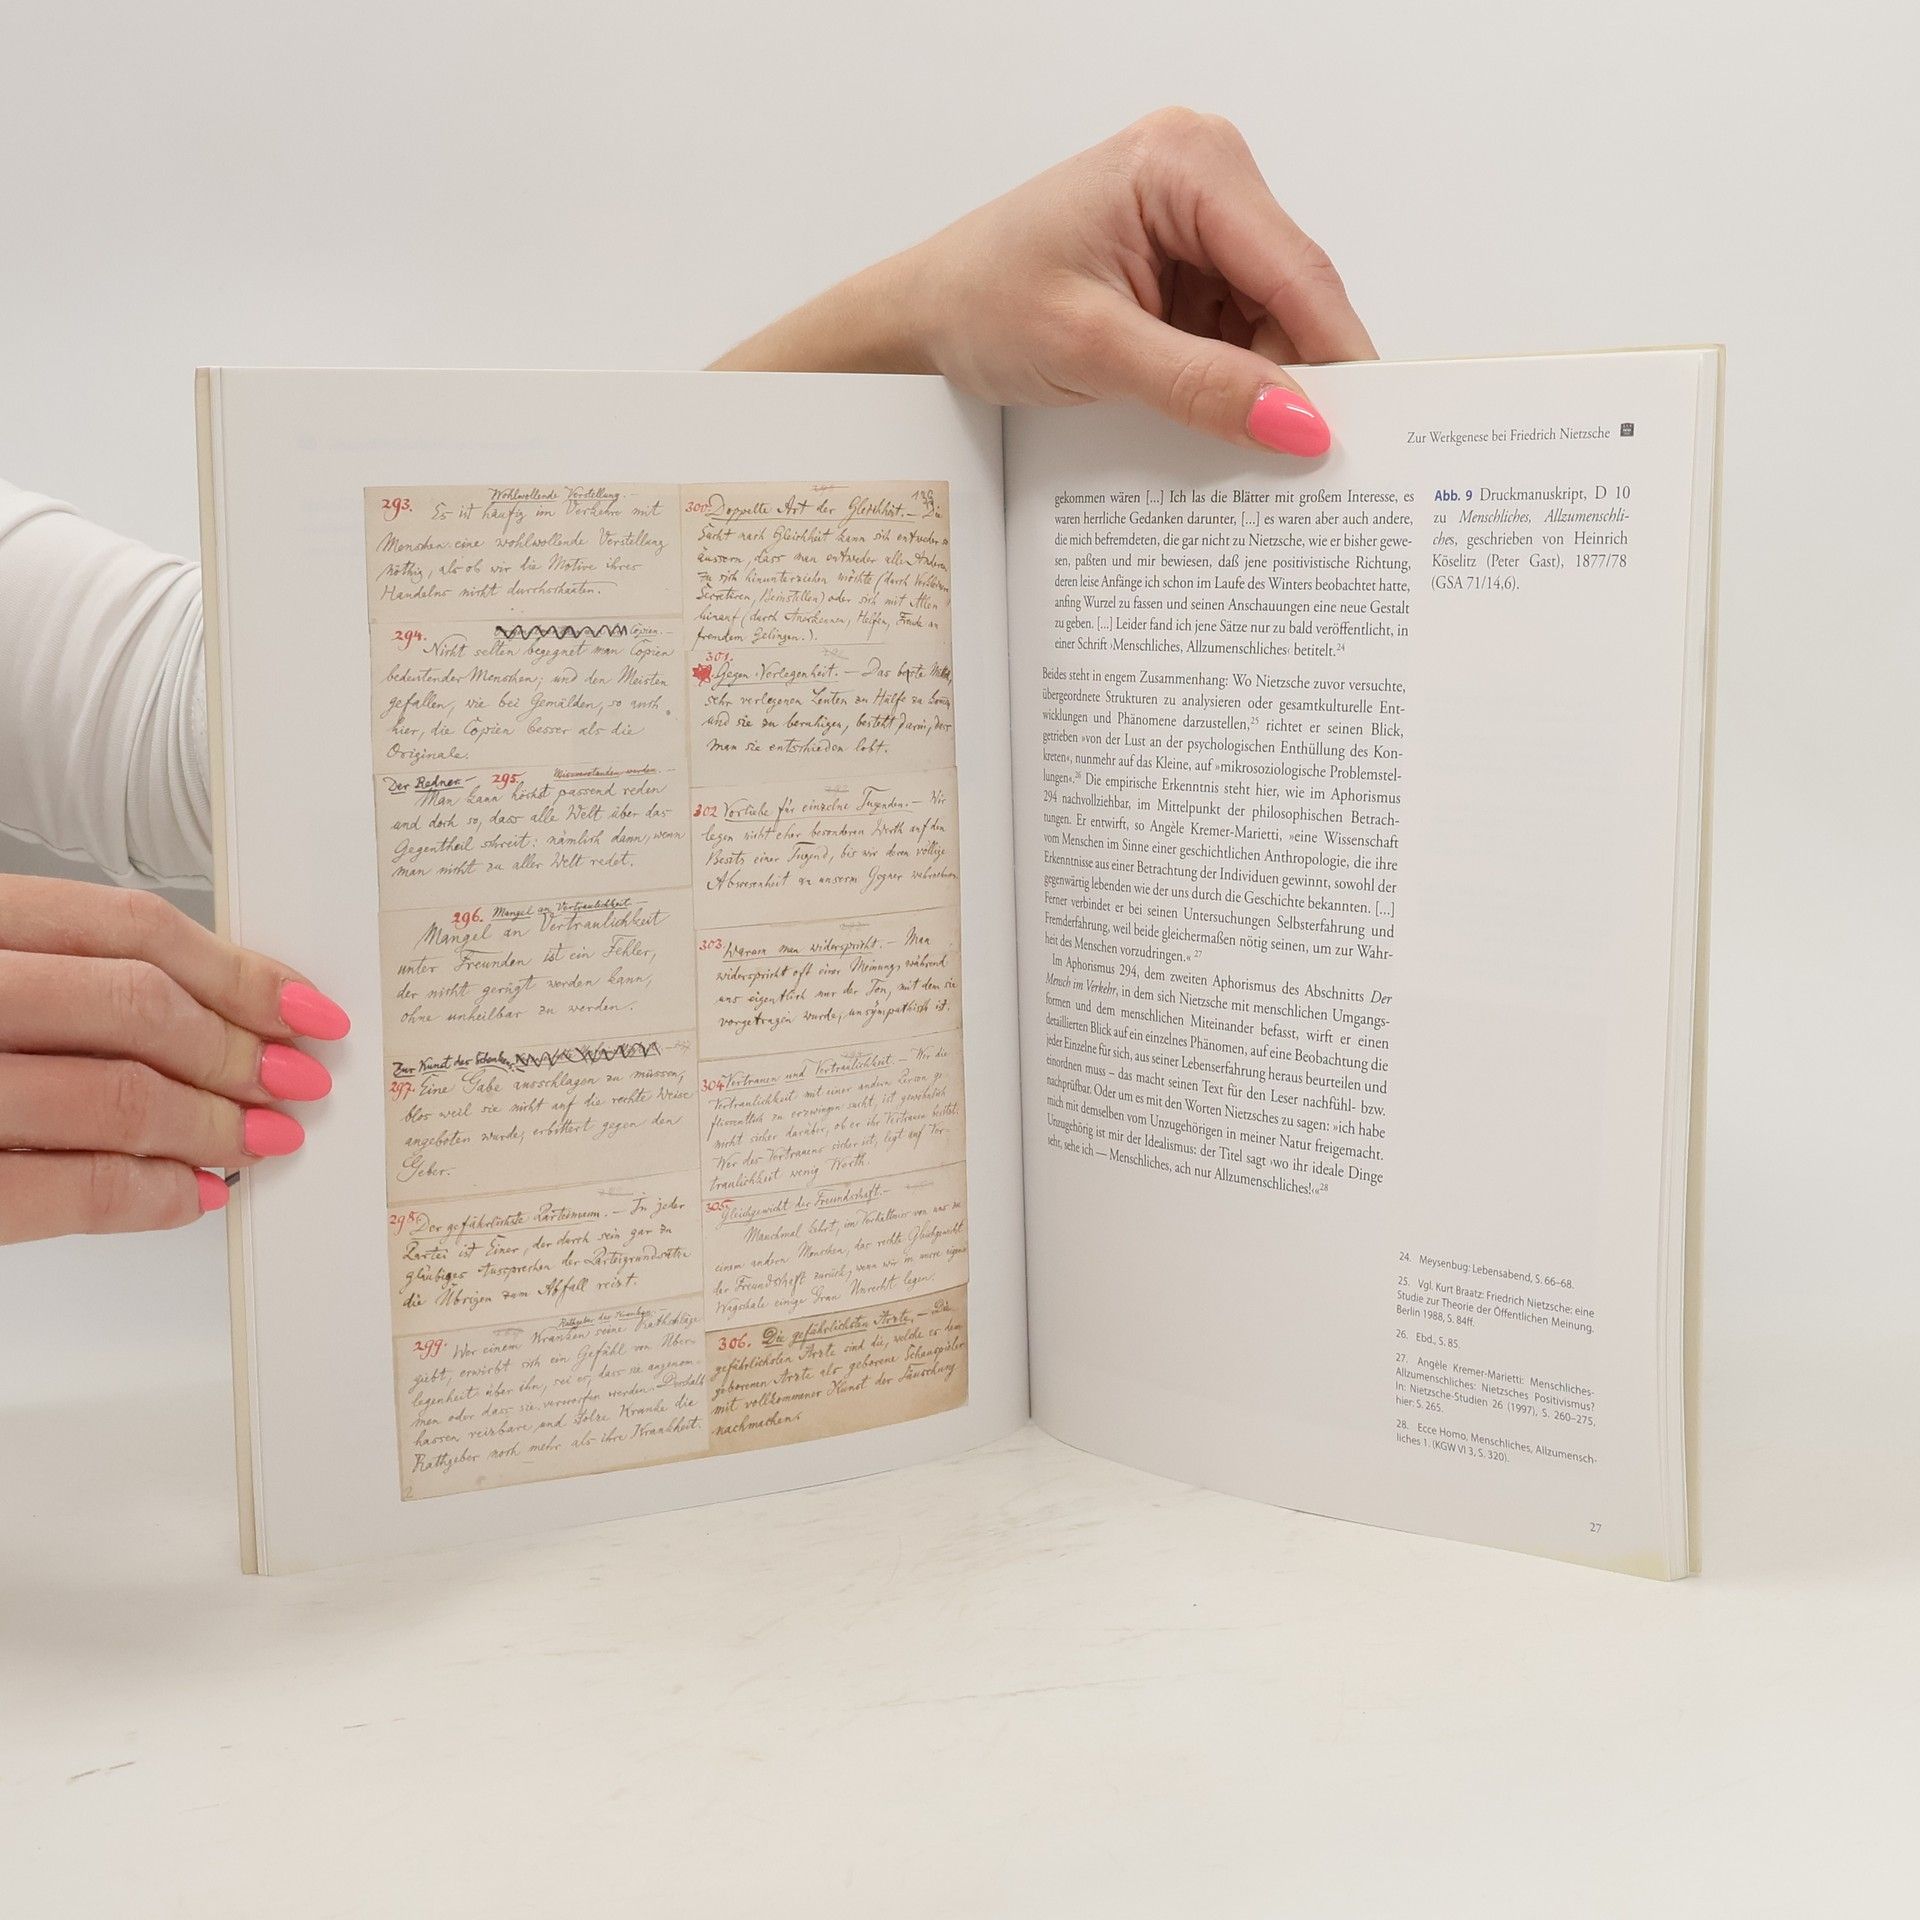 293. Wohlwollende Verstellung. —
Es ist häufig im Verkehre mit
Menschen eine wohlwollende Verstellung
nöthig, als ob wir die Motive ihres
Handelns nicht durchschauten.
294. Copien. —
Nicht selten begegnet man Copien
bedeutender Menschen; und den Meisten
gefallen, wie bei Gemälden, so auch
hier, die Copien besser als die
Originale.
Der Redner. — 295. Missverstanden werden. —
Man kann höchst passend reden
und doch so, dass alle Welt über das
Gegentheil schreit: nämlich dann, wenn
man nicht zu aller Welt redet.
296. Mangel an Vertraulichkeit. —
Mangel an Vertraulichkeit
unter Freunden ist ein Fehler,
der nicht gerügt werden kann,
ohne unheilbar zu werden.
Zur Kunst des Schenkens
297. Eine Gabe ausschlagen zu müssen,
blos weil sie nicht auf die rechte Weise
angeboten wurde, erbittert gegen den
Geber.
298. Der gefährlichste Parteimann. — In jeder
Partei ist Einer, der durch sein gar zu
gläubiges Aussprechen der Parteigrundsätze
die Übrigen zum Abfall reizt.
Rathgeber des Kranken. —
299. Wer einem Kranken seine Rathschläge
giebt, erwirbt sich ein Gefühl von Über-
legenheit über ihn, sei es, dass sie angenom-
men oder dass sie verworfen werden. Desshalb
hassen reizbare und stolze Kranke die
Rathgeber noch mehr als ihre Krankheit.
2
300. Doppelte Art der Gleichheit. — Die
Sucht nach Gleichheit kann sich entweder so
äussern, dass man entweder alle Anderen
zu sich hinunterziehen möchte (durch Verkleinern
Secretiren, Beinstellen) oder sich mit Allen
hinauf (durch Anerkennen, Helfen, Freude an
fremdem Gelingen.).
301.
Gegen Verlegenheit. — Das beste Mittel,
sehr verlegenen Leuten zu Hülfe zu kommen
und sie zu beruhigen, besteht darin, dass
man sie entschieden lobt.
302 Vorliebe für einzelne Tugenden. — Wir
legen nicht eher besonderen Werth auf den
Besitz einer Tugend, bis wir deren völlige
Abwesenheit an unserm Gegner wahrnehmen.
303. Warum man widerspricht. — Man
widerspricht oft einer Meinung, während
uns eigentlich nur der Ton, mit dem sie
vorgetragen wurde, unsympathisch ist.
304 Vertrauen und Vertraulichkeit. — Wer die
Vertraulichkeit mit einer andern Person ge-
flissentlich zu erzwingen sucht, ist gewöhnlich
nicht sicher darüber, ob er ihr Vertrauen besitzt.
Wer des Vertrauens sicher ist, legt auf Ver-
traulichkeit wenig Werth.
305. Gleichgewicht der Freundschaft. —
Manchmal kehrt, im Verhältniss von uns zu
einem andern Menschen, das rechte Gleichgewicht
der Freundschaft zurück, wenn wir in unsre eigene
Wagschale einige Gran Unrecht legen.
306. Die gefährlichsten Ärzte. — Die
gefährlichsten Ärzte sind die, welche es dem
geborenen Arzte als geborene Schauspieler
mit vollkommener Kunst der Täuschung
nachmachen.
Zur Werkgenese bei Friedrich Nietzsche
gekommen wären [...] Ich las die Blätter mit großem Interesse, es
waren herrliche Gedanken darunter, [...] es waren aber auch andere,
die mich befremdeten, die gar nicht zu Nietzsche, wie er bisher gewe-
sen, paßten und mir bewiesen, daß jene positivistische Richtung,
deren leise Anfänge ich schon im Laufe des Winters beobachtet hatte,
anfing Wurzel zu fassen und seinen Anschauungen eine neue Gestalt
zu geben. [...] Leider fand ich jene Sätze nur zu bald veröffentlicht, in
einer Schrift ›Menschliches, Allzumenschliches‹ betitelt.24
Beides steht in engem Zusammenhang: Wo Nietzsche zuvor versuchte,
übergeordnete Strukturen zu analysieren oder gesamtkulturelle Ent-
wicklungen und Phänomene darzustellen,25 richtet er seinen Blick,
getrieben »von der Lust an der psychologischen Enthüllung des Kon-
kreten«, nunmehr auf das Kleine, auf »mikrosoziologische Problemstel-
lungen«.26 Die empirische Erkenntnis steht hier, wie im Aphorismus
294 nachvollziehbar, im Mittelpunkt der philosophischen Betrach-
tungen. Er entwirft, so Angèle Kremer-Marietti, »eine Wissenschaft
vom Menschen im Sinne einer geschichtlichen Anthropologie, die ihre
Erkenntnisse aus einer Betrachtung der Individuen gewinnt, sowohl der
gegenwärtig lebenden wie der uns durch die Geschichte bekannten. [...]
Ferner verbindet er bei seinen Untersuchungen Selbsterfahrung und
Fremderfahrung, weil beide gleichermaßen nötig seinen, um zur Wahr-
heit des Menschen vorzudringen.«27
Im Aphorismus 294, dem zweiten Aphorismus des Abschnitts Der
Mensch im Verkehr, in dem sich Nietzsche mit menschlichen Umgangs-
formen und dem menschlichen Miteinander befasst, wirft er einen
detaillierten Blick auf ein einzelnes Phänomen, auf eine Beobachtung die
jeder Einzelne für sich, aus seiner Lebenserfahrung heraus beurteilen und
einordnen muss – das macht seinen Text für den Leser nachfühl- bzw.
nachprüfbar. Oder um es mit den Worten Nietzsches zu sagen: »ich habe
mich mit demselben vom Unzugehörigen in meiner Natur freigemacht.
Unzugehörig ist mir der Idealismus: der Titel sagt ›wo ihr ideale Dinge
seht, sehe ich — Menschliches, ach nur Allzumenschliches!‹«28
Abb. 9 Druckmanuskript, D 10
zu Menschliches, Allzumenschli-
ches, geschrieben von Heinrich
Köselitz (Peter Gast), 1877/78
(GSA 71/14,6).
24. Meysenbug: Lebensabend, S. 66–68.
25. Vgl. Kurt Braatz: Friedrich Nietzsche: eine
Studie zur Theorie der Öffentlichen Meinung.
Berlin 1988, S. 84ff.
26. Ebd., S. 85.
27. Angèle Kremer-Marietti: Menschliches-
Allzumenschliches: Nietzsches Positivismus?
In: Nietzsche-Studien 26 (1997), S. 260–275,
hier: S. 265.
28. Ecce Homo, Menschliches, Allzumensch-
liches 1. (KGW VI 3, S. 320).
27